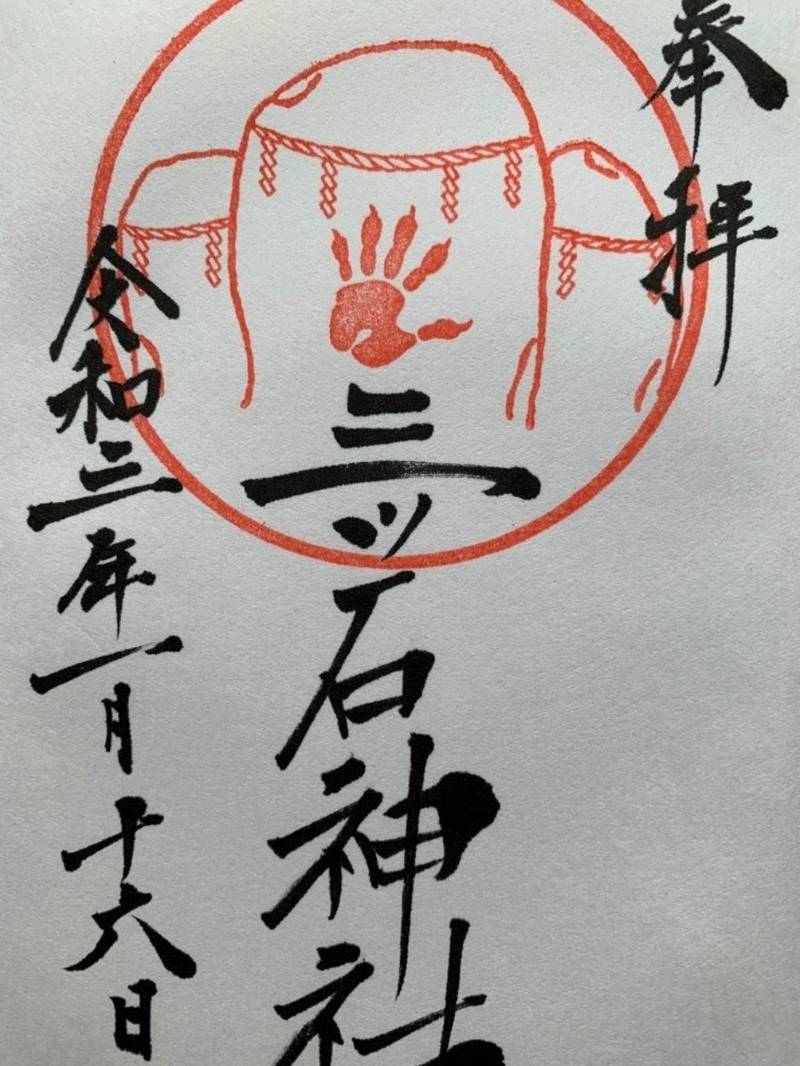 奉拝
三ッ石神社
令和三年一月十六日